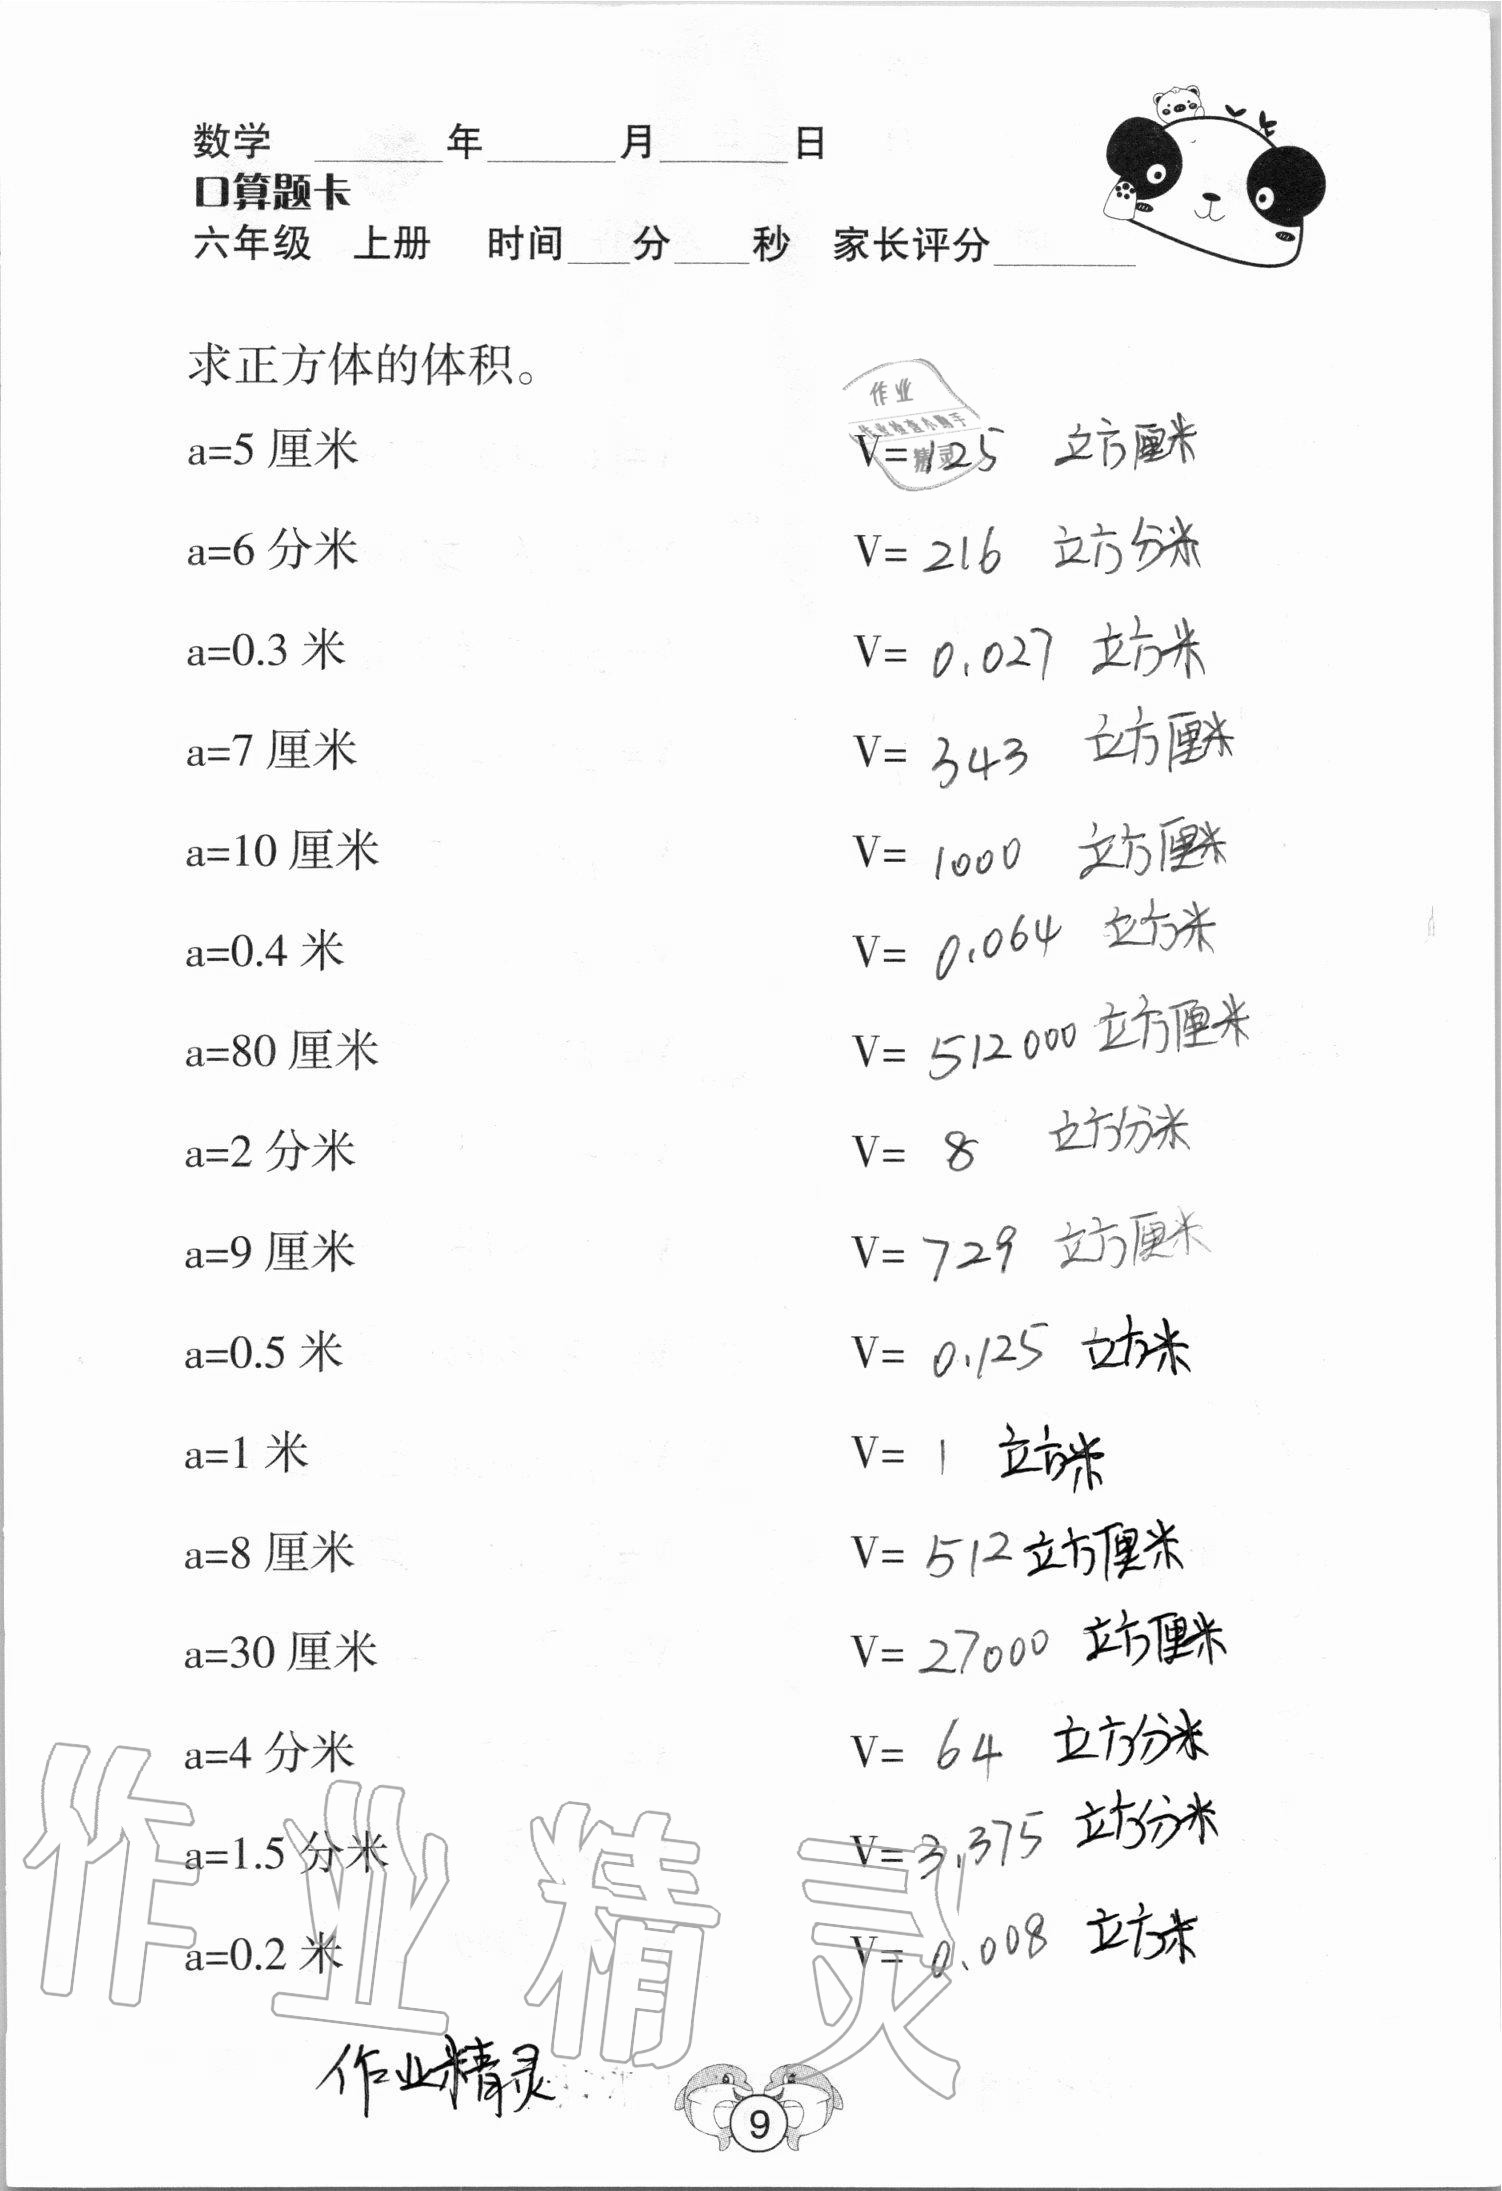 数学 ______年______月______日
口算题卡
六年级 上册 时间___分____秒 家长评分_______
求正方体的体积。
作业
作业检查小助手
精灵
a=5 厘米 V=125 立方厘米
a=6 分米 V=216 立方分米
a=0.3 米 V=0.027 立方米
a=7 厘米 V=343 立方厘米
a=10 厘米 V=1000 立方厘米
a=0.4 米 V=0.064 立方米
a=80 厘米 V=512000 立方厘米
a=2 分米 V=8 立方分米
a=9 厘米 V=729 立方厘米
a=0.5 米 V=0.125 立方米
a=1 米 V=1 立方米
a=8 厘米 V=512 立方厘米
a=30 厘米 V=27000 立方厘米
a=4 分米 V=64 立方分米
a=1.5 分米 V=3.375 立方分米
a=0.2 米 V=0.008 立方米
作业精灵
作业精灵
9